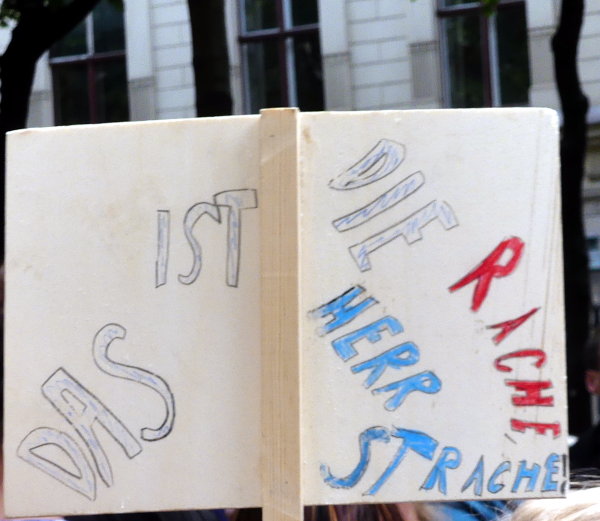 DAS IST
DIE RACHE,
HERR
STRACHE!